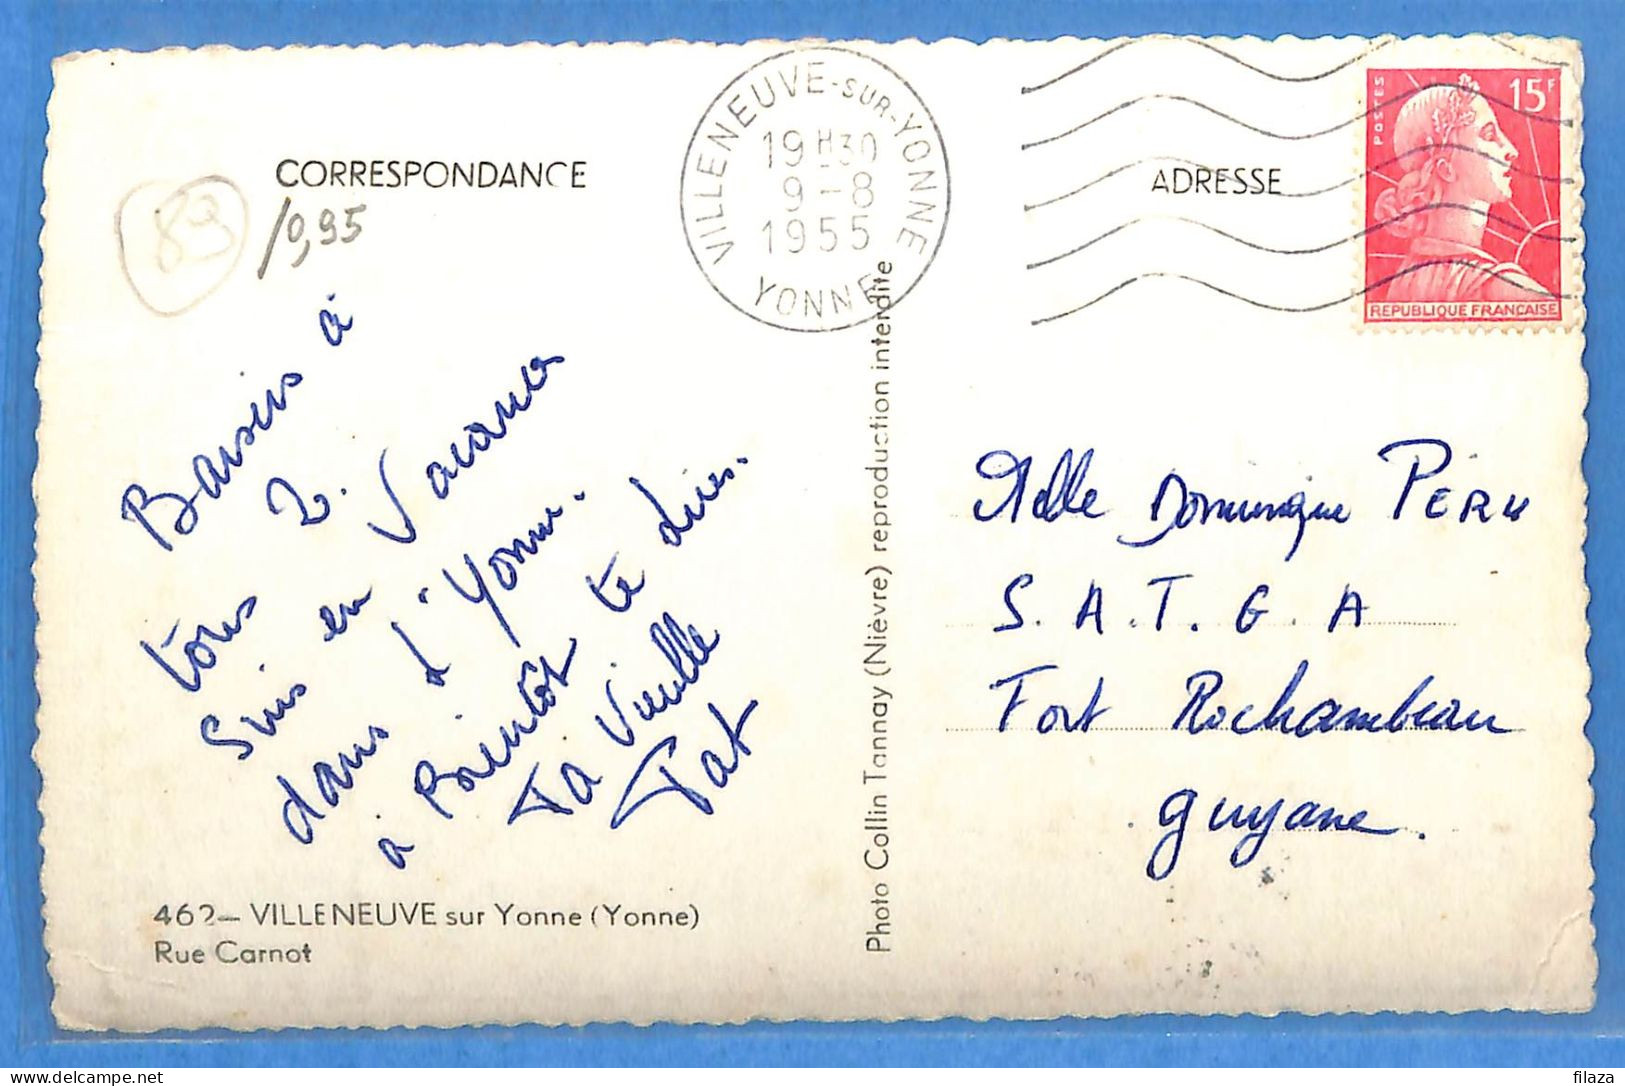 CORRESPONDANCE
ADRESSE
VILLENEUVE-SUR-YONNE
19H30
9-8
1955
YONNE
POSTES
15F
REPUBLIQUE FRANÇAISE
83
10,95
Baisers à
tous 2.
Suis en Vacances
dans l'Yonne.
à Bientôt te dire.
Ta Vieille
Pat
462- VILLENEUVE sur Yonne (Yonne)
Rue Carnot
Photo Collin Tannay (Nièvre) reproduction interdite
Melle Dominique PERU
S.A.T.G.A
Fort Rochambeau
Guyane.
delcampe.net
filaza